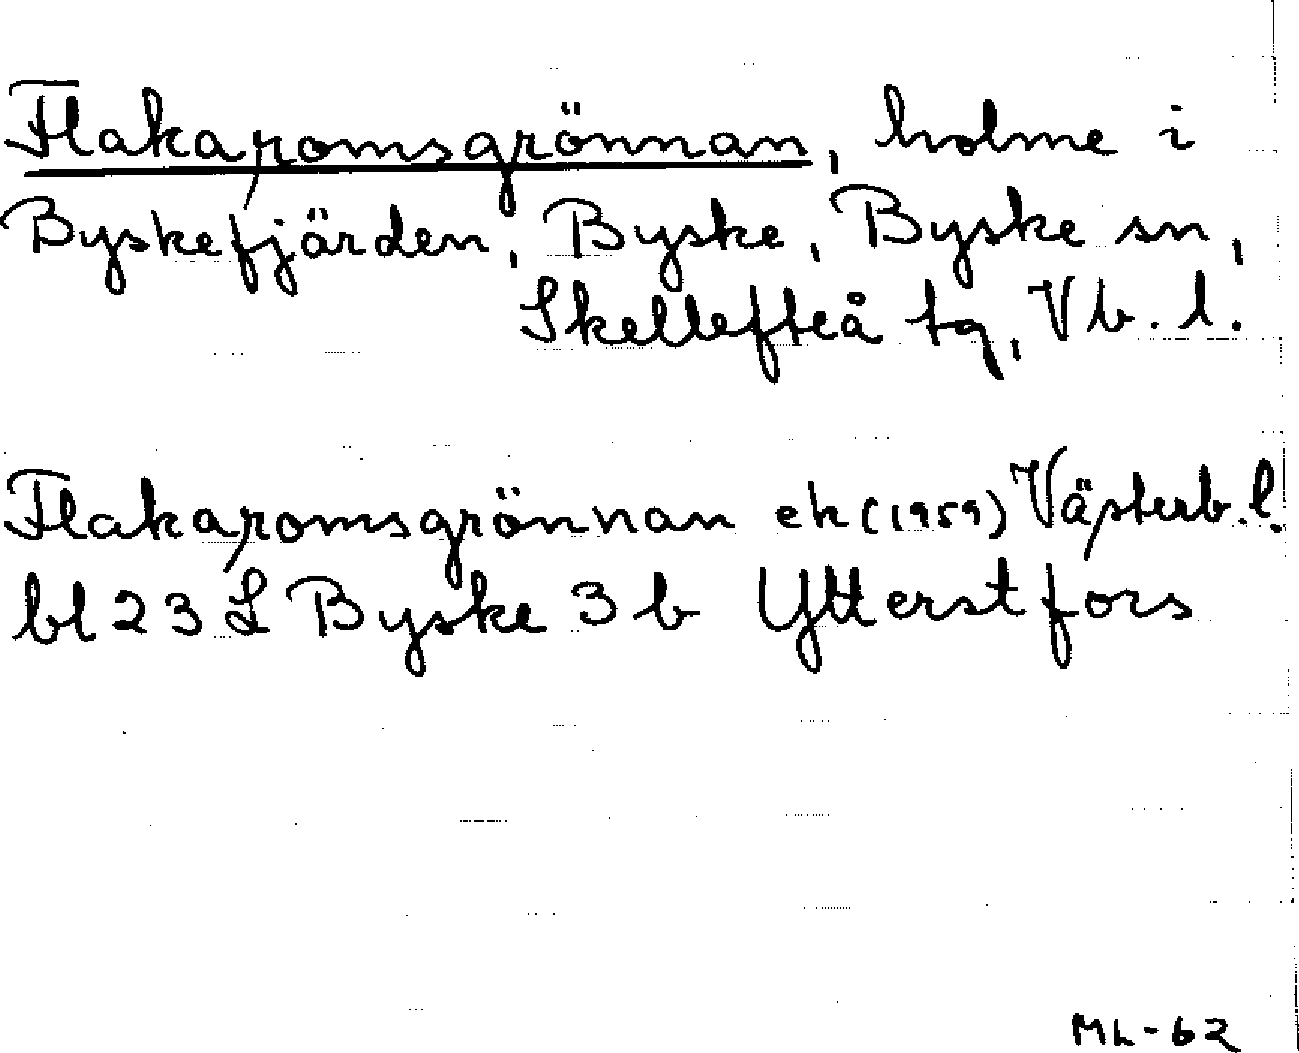 Flakapromsgrönnan, holme i
Byskefjärden, Byske, Byske sn,
Skellefteå tg, Vb. l.
Flakapromsgrönnan ek (1959) Västerb. l.
bl 23 L Byske 3 b Ytterstfors
ML-62